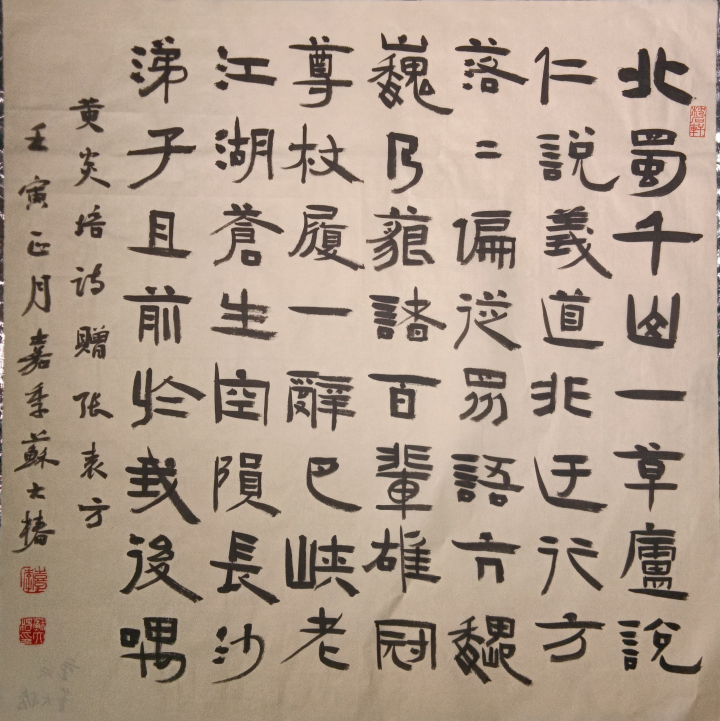 北蜀千山一草廬說
仁說義道非迂行方
落二偏從眾語亢魏
巍乃藐諸百輩雄冠
尊杖履一辭巴峽老
江湖蒼生空隕長沙
涕子且前於我後喁
黄炎培诗赠张表方
壬寅正月嘉季蘇大椿